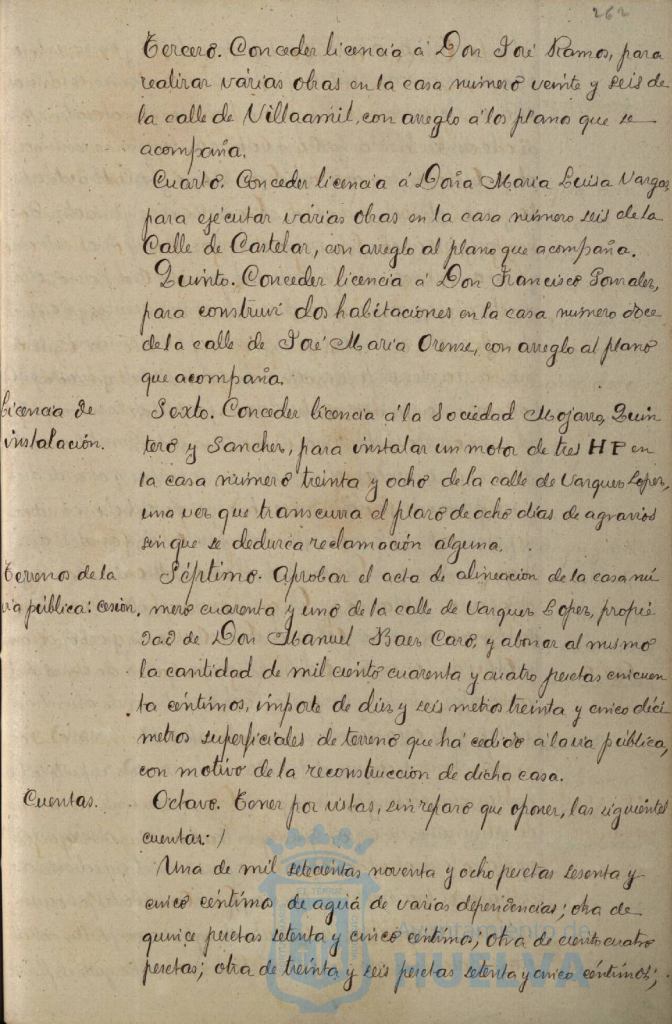 262
Tercero. Conceder licencia á Don José Ramos, para
realizar várias obras en la casa número veinte y seis de
la calle de Villaamil, con arreglo á los plano que se
acompaña.
Cuarto. Conceder licencia á Doña Maria Luisa Vargas,
para ejecutar várias obras en la casa número seis de la
Calle de Castelar, con arreglo al plano que acompaña.
Quinto. Conceder licencia á Don Francisco Gonzalez,
para construir dos habitaciones en la casa numero doce
de la calle de José Maria Orense, con arreglo al plano
que acompaña.
Licencia de
instalación.
Sexto. Conceder licencia á la Sociedad Mojarro, Quin
tero y Sanchez, para instalar un motor de tres HP en
la casa número treinta y ocho de la calle de Vazquez Lopez,
una vez que transcurra el plazo de ocho dias de agravios
sin que se deduzca reclamación alguna.
Terrenos de la
via pública: cesión.
Séptimo. Aprobar el acta de alineacion de la casa nú
mero cuarenta y uno de la calle de Vazquez Lopez, propie
dad de Don Manuel Baez Caro, y abonar al mismo
la cantidad de mil ciento cuarenta y cuatro pesetas cincuen
ta céntimos, importe de diez y seis metros treinta y cinco déci
metros superficiales de terreno que há cedido á la via pública,
con motivo de la reconstruccion de dicha casa.
Cuentas.
Octavo. Tener por vistas, sin reparo que oponer, las siguientes
cuentas:
Una de mil setecientas noventa y ocho pesetas sesenta y
cinco céntimos de agua de varias dependencias; otra de
quince pesetas setenta y cinco centimos; otra de ciento cuatro
pesetas; otra de treinta y seis pesetas setenta y cinco céntimos;
Ayuntamiento de
HUELVA